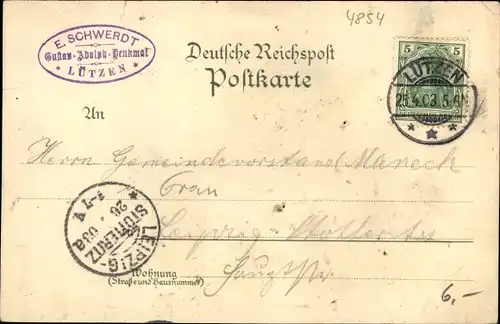 4854
E. SCHWERDT
Gustav-Adolph-Denkmal
* LÜTZEN *
Deutsche Reichspost
Postkarte
5 5
LÜTZEN
25.4.03.5-6N
An
Herrn Gemeindevorstand Maneck
Leipzig-Stötteritz
Hauptstr.
LEIPZIG-
STÖTTERITZ
26.
03
1-7V
Wohnung
(Straße und Hausnummer)
6,-